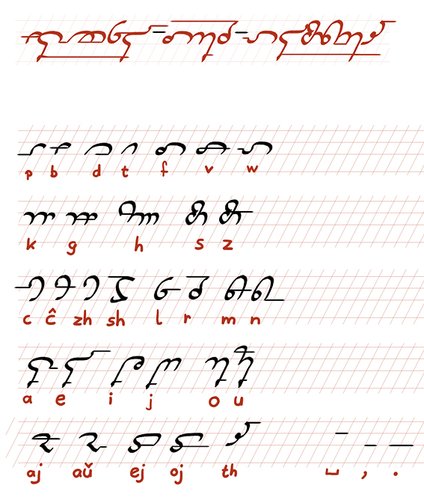 p b d t f v w
k g h s z
c ĉ zh sh l r m n
a e i j o u
aj aŭ ej oj th ⎵ , .